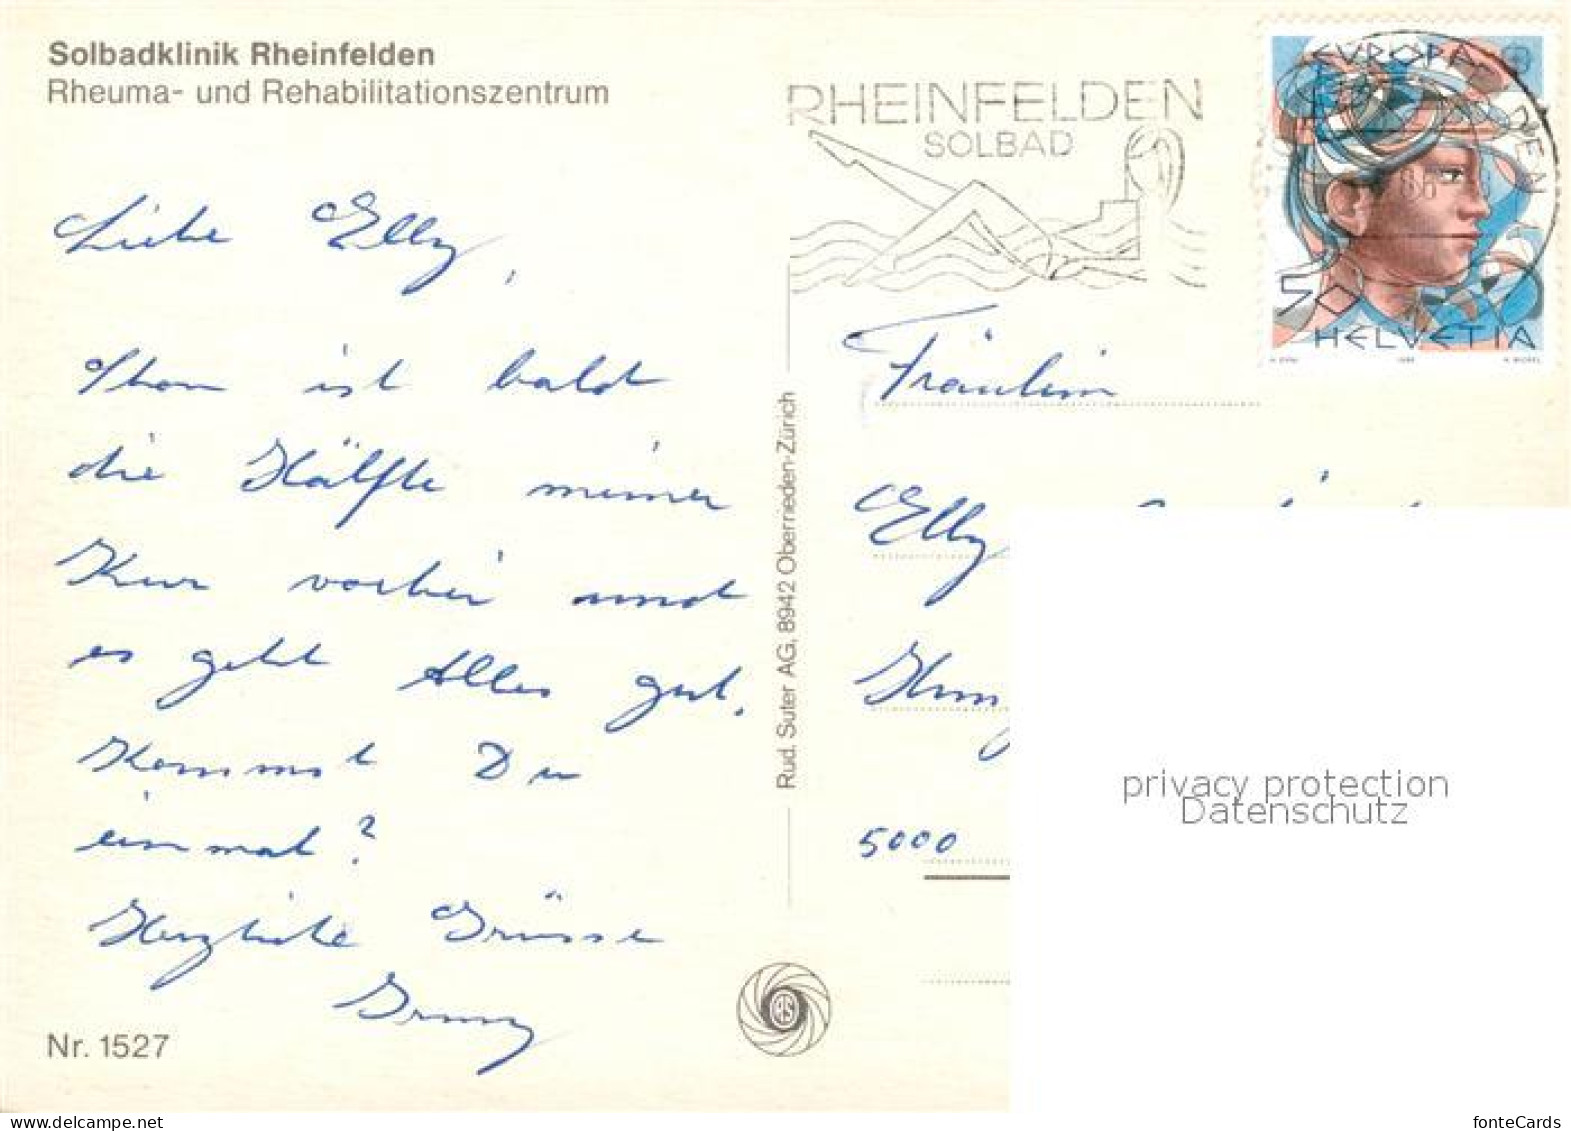 Solbadklinik Rheinfelden
Rheuma- und Rehabilitationszentrum
RHEINFELDEN
SOLBAD
EUROPA
50
HELVETIA
Liebe Elly,
Schon ist bald
die Hälfte meiner
Kur vorbei und
es geht Alles gut.
Kommst Du
einmal?
Herzliche Grüsse
Nr. 1527
Rud. Suter AG, 8942 Oberrieden-Zürich
RS
Fräulein
Elly
5000
privacy protection
Datenschutz
www.delcampe.net
fonteCards